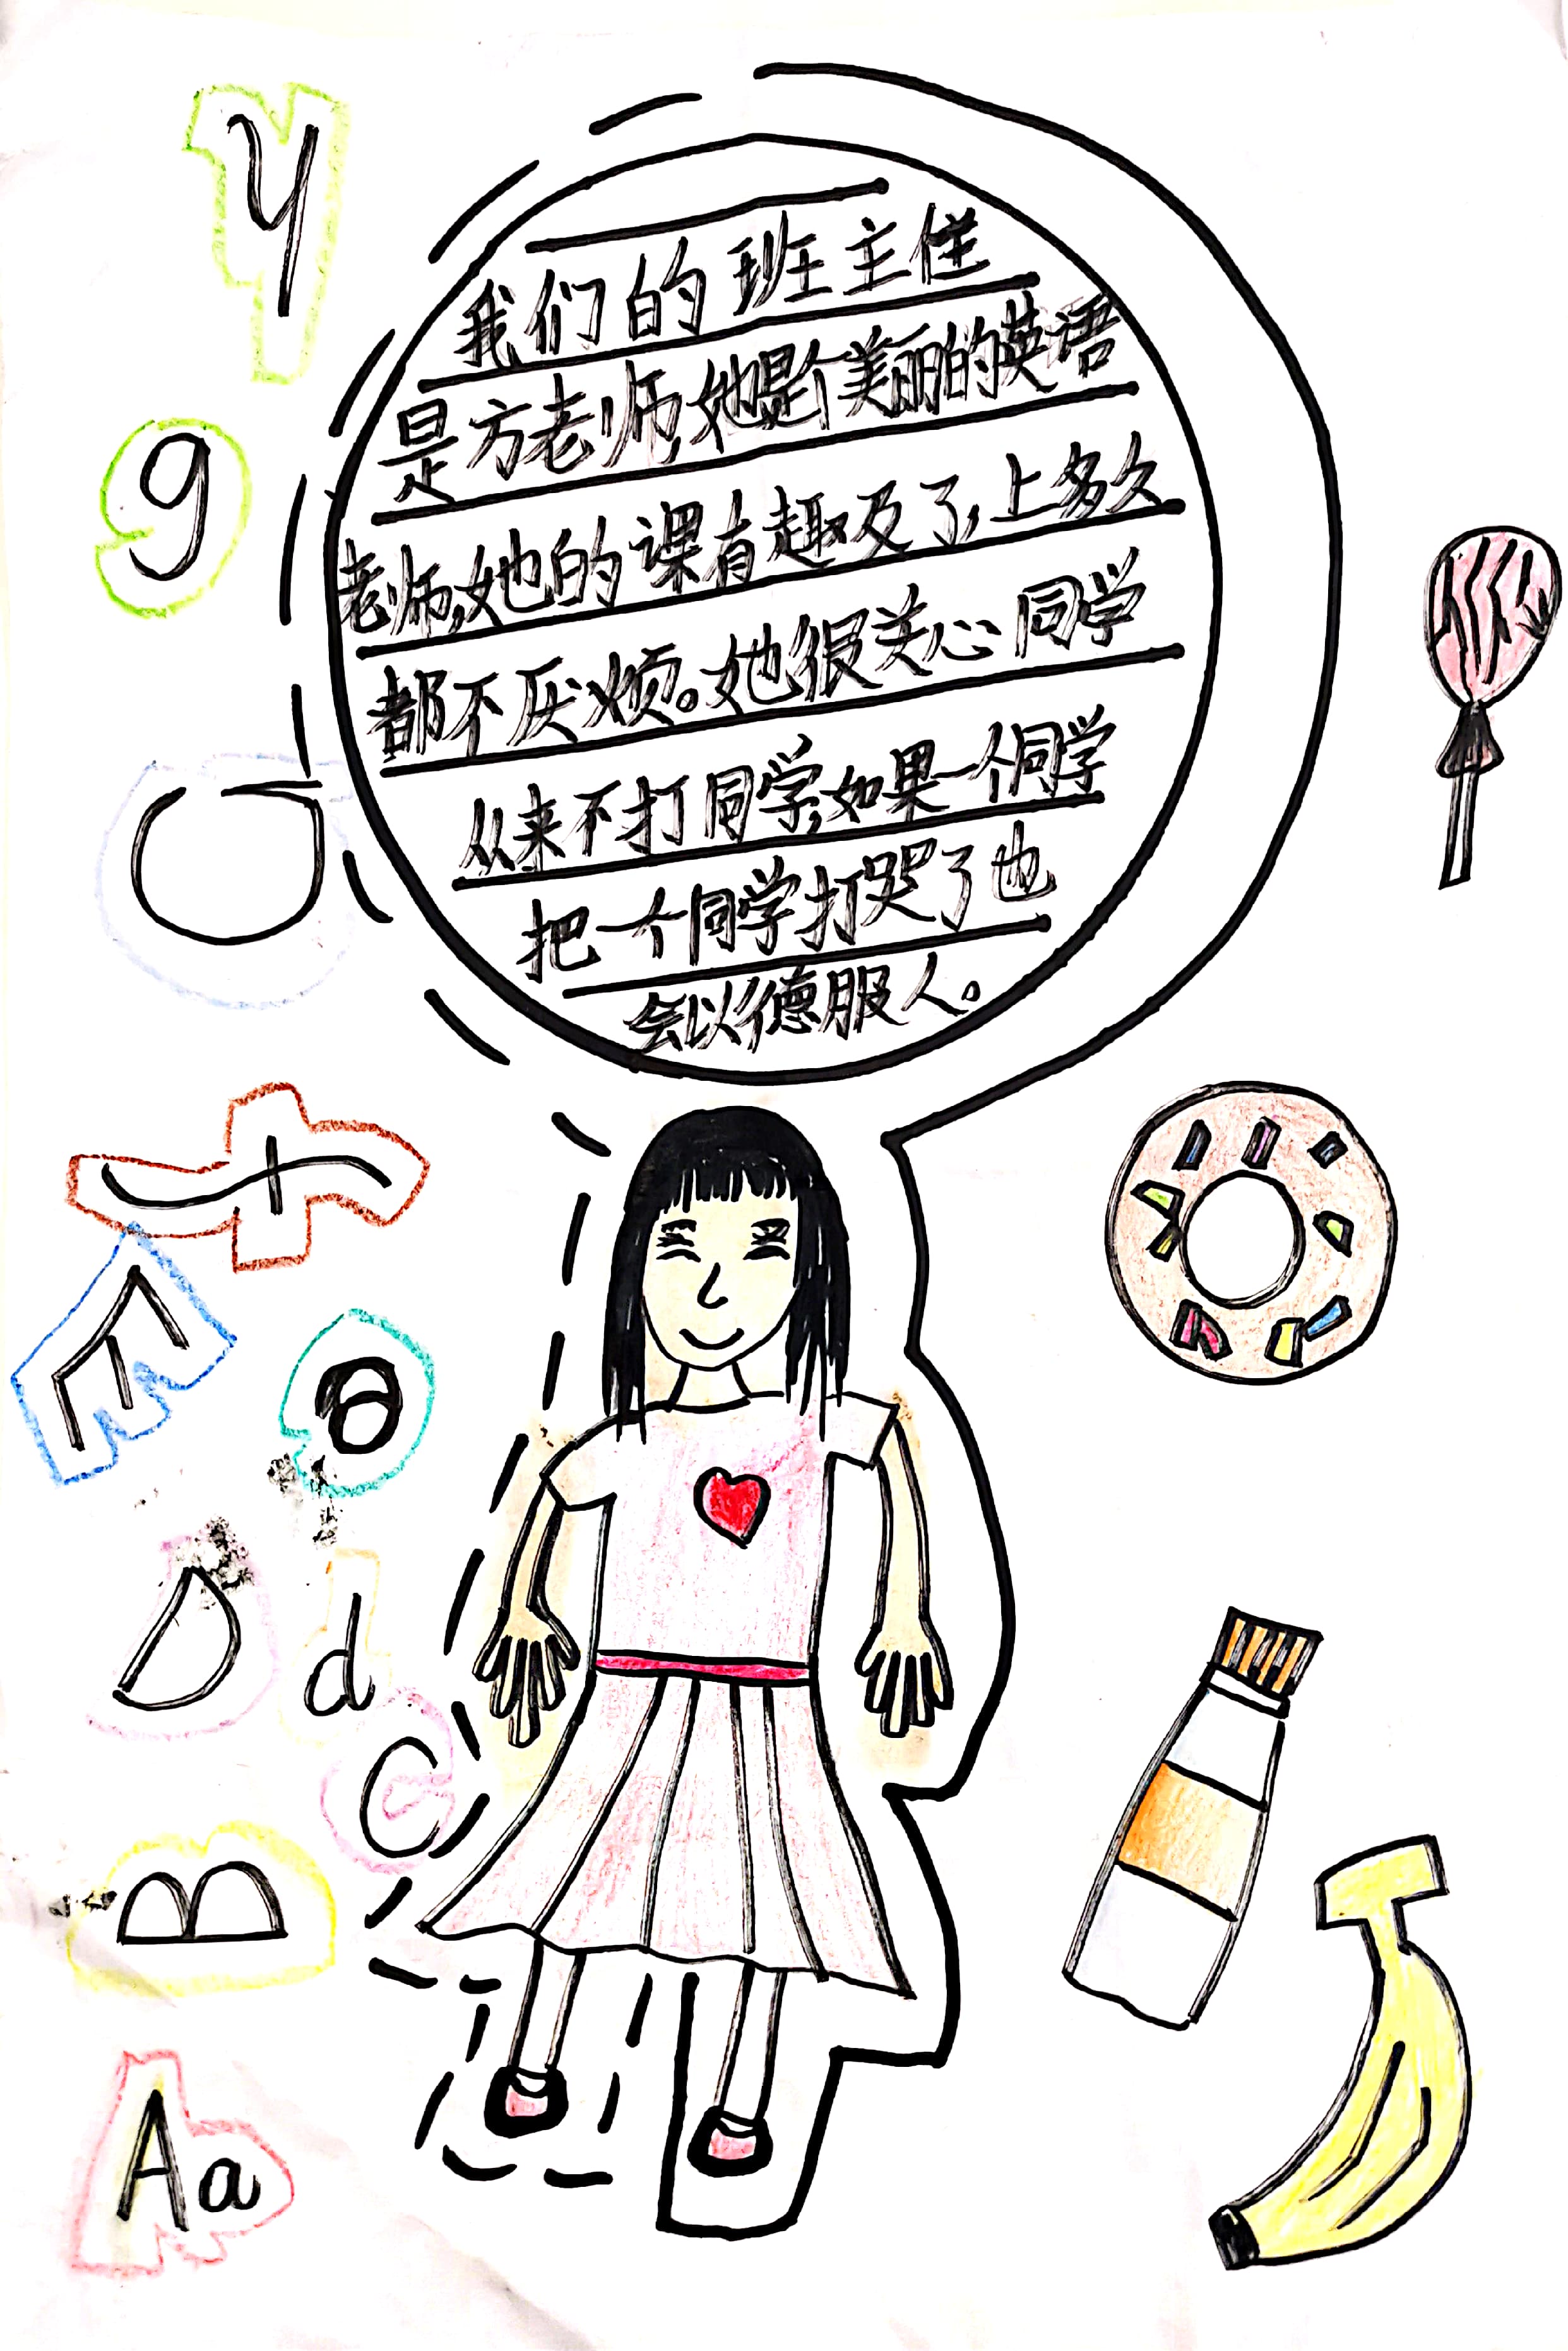 我们的班主任
是方老师,她是个美丽的英语
老师,她的课有趣及了,上多久
都不厌烦。她很关心同学
从来不打同学,如果一个同学
把一个同学打哭了也
会以德服人。
y
g
G
f
E
e
D d
C
B
Aa